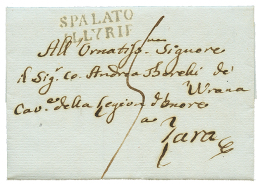 SPALATO
ILLYRIE
All' Ornatiss.mo Signore
Il Sig.r Co. Andrea Borelli de'
Wrana
Cav.e della Legion d'onore
a
Zara